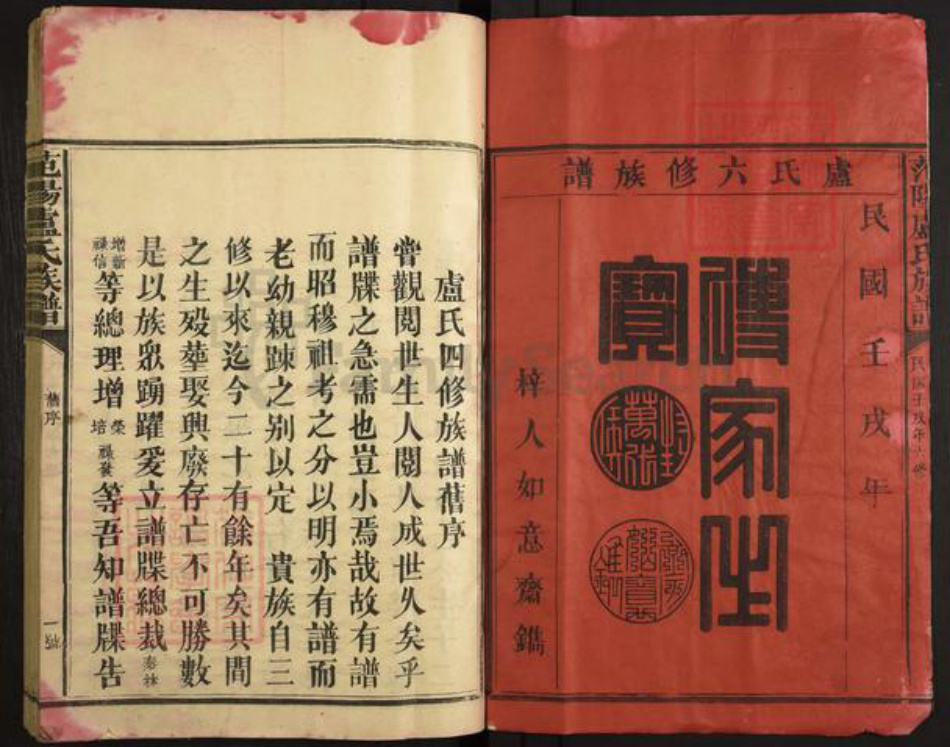 盧氏六修族譜
民國壬戌年
傳家之
寶
梓人如意齋鐫
范陽盧氏族譜
民國壬戌年六修
盧氏四修族譜舊序
嘗觀閱世生人閱人成世久矣乎
譜牒之急需也豈小焉哉故有譜
而昭穆祖考之分以明亦有譜而
老幼親踈之别以定 貴族自三
修以來迄今二十有餘年矣其間
之生殁塟娶興廢存亡不可勝數
是以族眾踴躍爰立譜牒總裁泰林
增新祿信等總理增榮培祿發等吾知譜牒告
范陽盧氏族譜
舊序
一